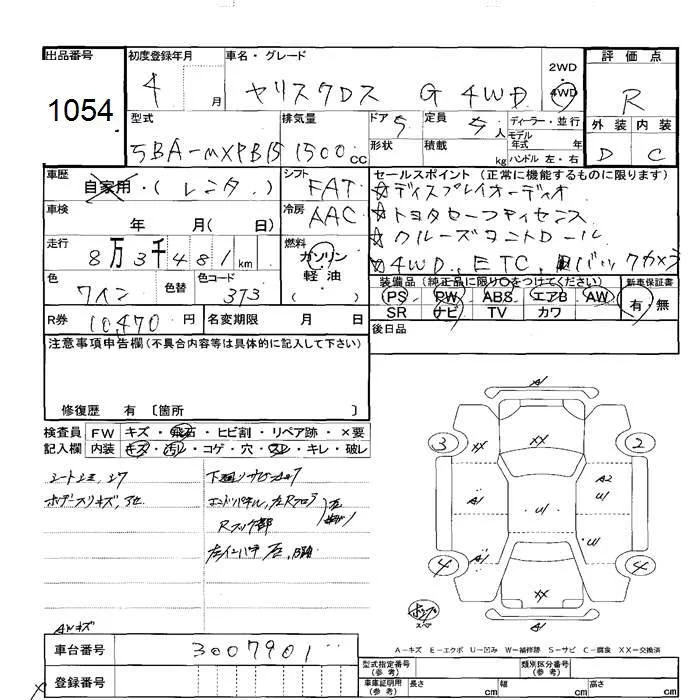 出品番号 1054
初度登録年月 4 月
車名・グレード ヤリスクロス G 4WD
2WD ・ 4WD
評価点 R
型式 5BA-MXPB15
排気量 1500 cc
ドア 5 定員 5人
ディーラー・並行
モデル年式 年
形状 積載 kg ハンドル 左・右
外装 内装
D C
車歴 自家用・( レンタ )
シフト FAT
セールスポイント (正常に機能するものに限ります)
☆ディスプレイオーディオ
☆トヨタセーフティセンス
☆クルーズコントロール
☆4WD、ETC、バックカメラ
車検 年 月( 日)
冷房 AAC
走行 8万3千481km
燃料 ガソリン 軽・油 ( )
色 ワイン 色替 色コード 3T3
装備品 (純正品に限り○をつけてください) 新車保証書
PS PW ABS エアB AW 有・無
SR ナビ TV カワ
R券 10,470 円 名変期限 月 日
後日品
注意事項申告欄(不具合内容等は具体的に記入して下さい)
修復歴 有 〔箇所 〕
検査員 FW キズ・飛石・ヒビ割・リペア跡・×要
記入欄 内装 キズ・汚レ・コゲ・穴・スレ・キレ・破レ
A
3 XX XX 2
A1 U1 A2 U1
A1 U1
4 XX 4
A
AWキズ
A-キズ E-エクボ U-凹み W-補修跡 S-サビ C-腐食 XX-交換済
車台番号 3007901
登録番号
型式指定番号(参考) 類別区分番号(参考)
車庫証明用(参考) 長さ cm 幅 cm 高さ cm